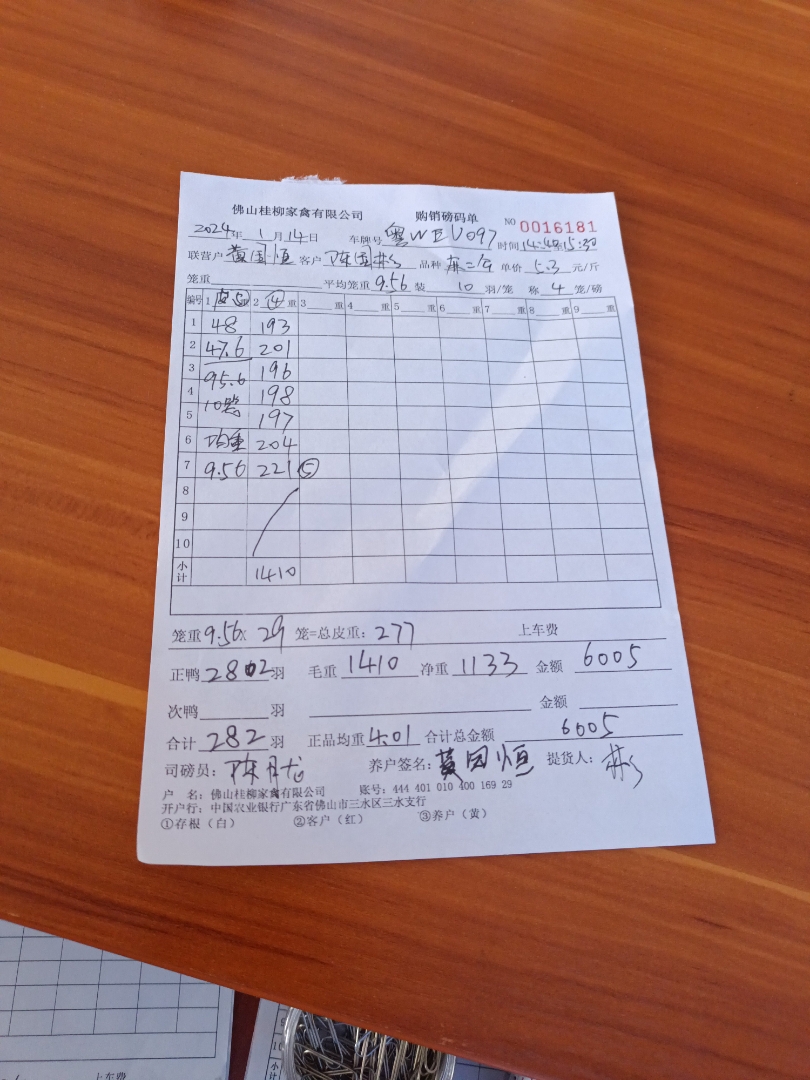 佛山桂柳家禽有限公司 购销磅码单 NO 0016181
2024年 1月14日 车牌号 粤WEU097 时间14:48至15:30
联营户 黄国恒 客户 陈国彬 品种 麻二 单价 5.3 元/斤
笼重 平均笼重 9.56 装 10 羽/笼 称 4 笼/磅
编号 1 皮⑤重 2 ④ 重 3 重 4 重 5 重 6 重 7 重 8 重 9 重
1 48 193
2 47.6 201
3 95.6 196
4 10笼 198
5 197
6 均重 204
7 9.56 221⑤
8
9
10
小计 1410
笼重9.56×29 笼=总皮重：277 上车费
正鸭 282 羽 毛重 1410 净重 1133 金额 6005
次鸭 羽 金额
合计 282 羽 正品均重4.01 合计总金额 6005
司磅员：陈月龙 养户签名：黄国恒 提货人：彬
户 名：佛山桂柳家禽有限公司 账号：444 401 010 400 169 29
开户行：中国农业银行广东省佛山市三水区三水支行
①存根（白） ②客户（红） ③养户（黄）
上车费